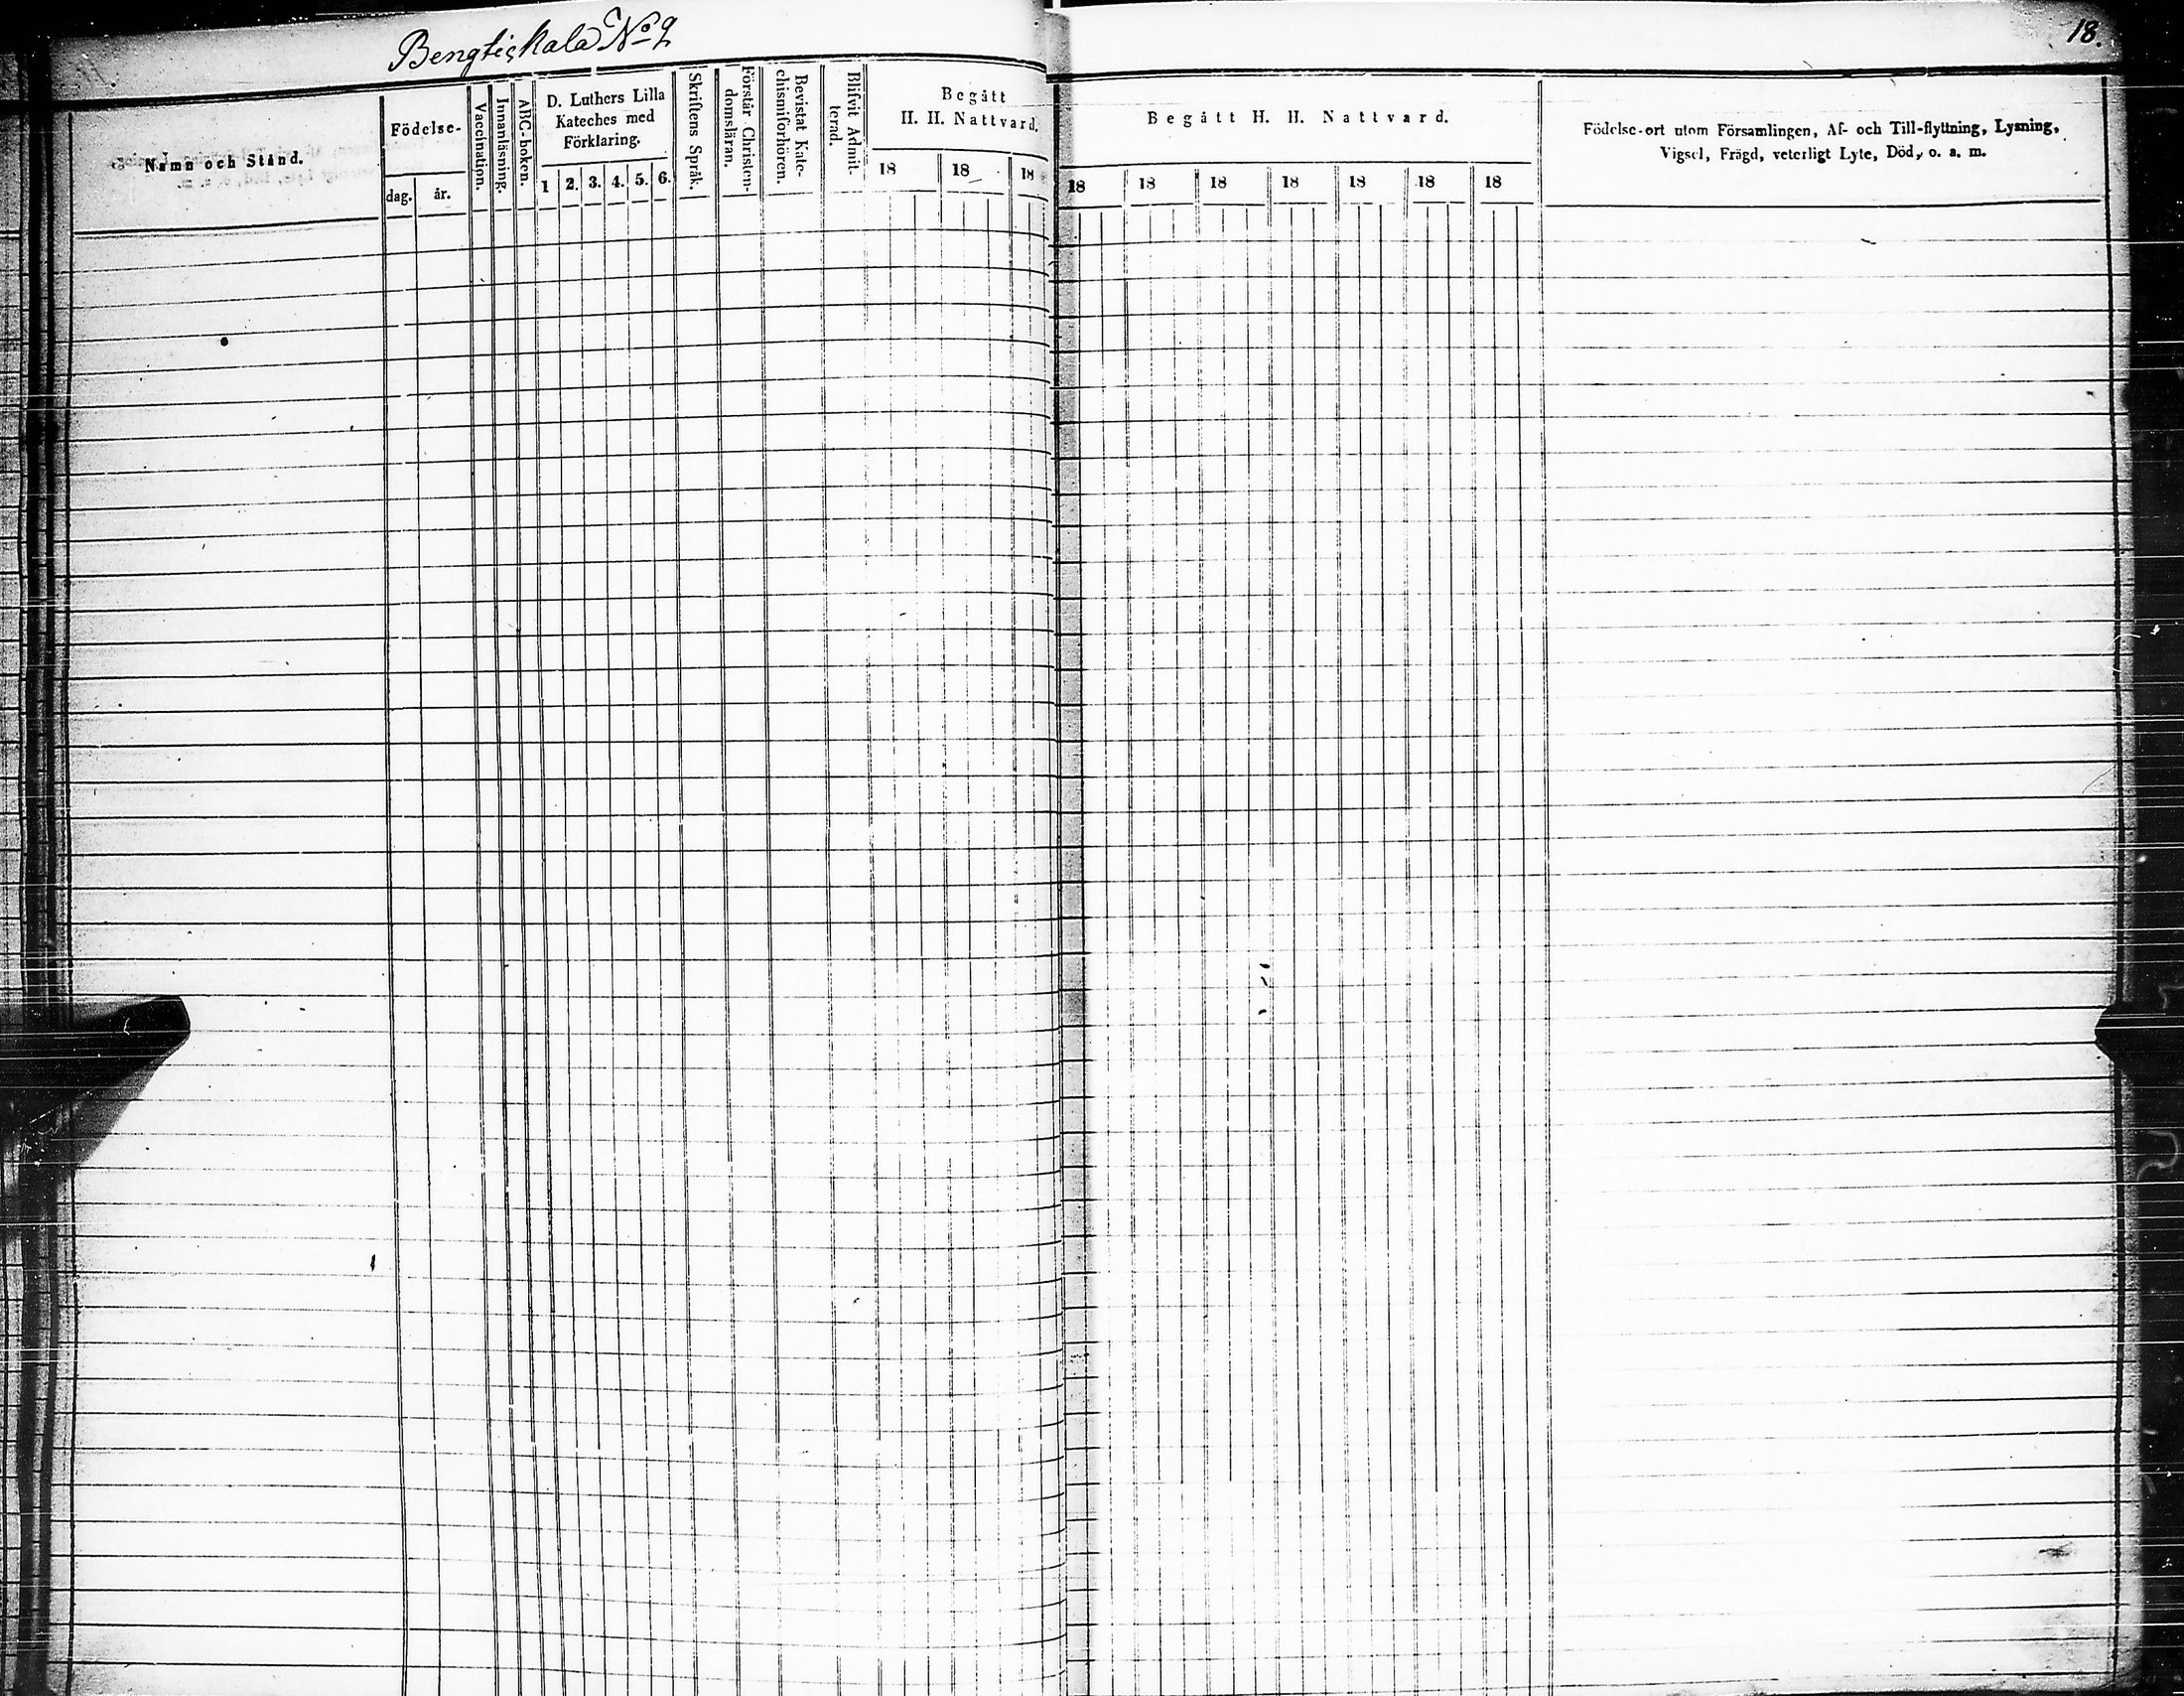 Bengtiskala No 2
18.
Namn och Stånd.
Födelse-
dag. år.
Vaccination.
Innanläsning.
ABC-boken.
D. Luthers Lilla
Kateches med
Förklaring.
1 2. 3. 4. 5. 6.
Skriftens Språk.
Förstår Christen-
domsläran.
Bevistat Kate-
chismiforhören.
Blifvit Admit-
terad.
Begått
H. H. Nattvard.
18 18 18
Begått H. H. Nattvard.
18 18 18 18 18 18 18
Födelse-ort utom Församlingen, Af- och Till-flyttning, Lysning,
Vigsel, Frägd, veterligt Lyte, Död, o. a. m.